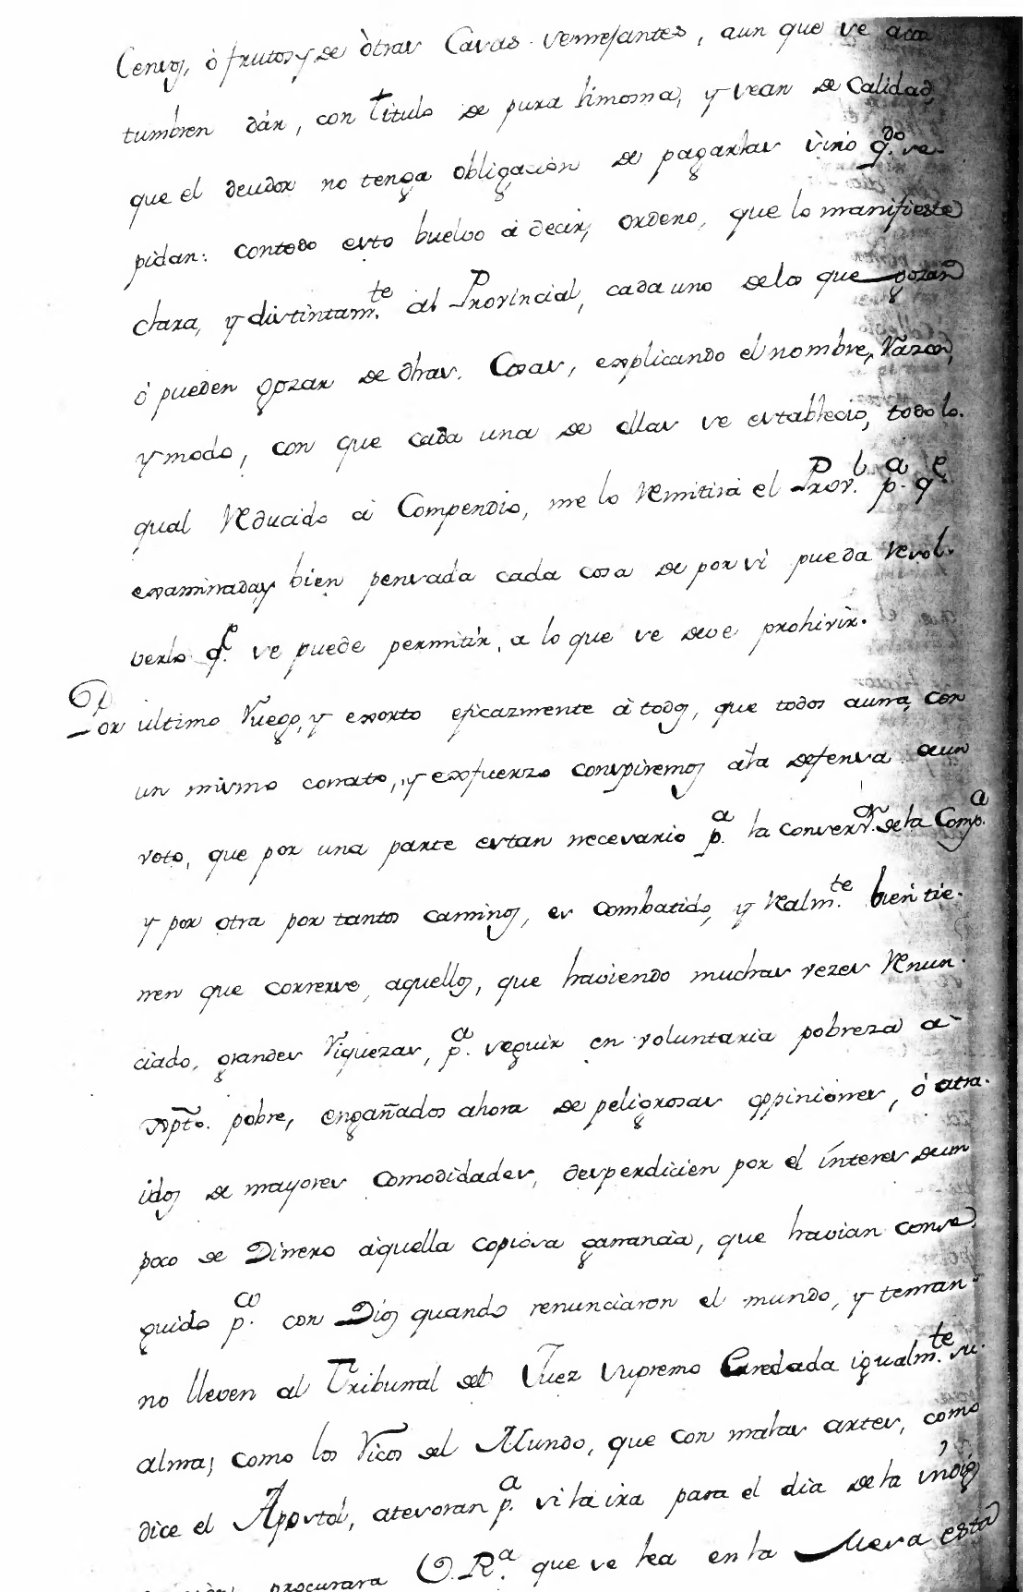 Censos, ò frutos, y de òtras Casas semejantes, aun que se acos
tumbren dár, con Titulo de pura limosna, y sean de Calidad,
que el deudor no tenga obligaciòn de pagarlas sinó q.do se
pidan: contodo esto buelvo á decir, ordeno, que lo manifieste
clara, y distintam.te al Provincial, cada uno delos que gozan
ó pueden gozar de dhas. Cosas, explicando el nombre, razon,
y modo, con que cada una de ellas se establecio, todo lo.
qual reducido á Compendio, me lo remitirá el Prov.l p.a q.e
examinada, y bien pensada cada cosa de por si pueda resol.
verlo q.e se puede permitir, a lo que se deve prohivir.
Por ultimo ruego, y exorto eficazmente á todos, que todos auna, con
un mismo conato, y exfuerzo conspiremos ala defensa deun
voto, que por una parte estan necesario p.a la conserv.n de la Comp.a
y por otra por tantos caminos, es combatido, y realm.te bien tie.
nen que correrse, aquellos, que haviendo muchas vezes renun.
ciado, grandes riquezas, p.a seguir en voluntaria pobreza a
Xpto. pobre, engañados ahora de peligrosas oppiniones, ó atra.
idos de mayores comodidades, desperdicien por el ínteres deun
poco de Dinero aquella copiosa ganancia, que havian conse
guido p.co con Dios quando renunciaron el mundo, y teman
no lleven al Tribunal del Juez supremo Enredada igualm.te su.
alma, como los ricos del Mundo, que con malas artes, como
dice el Apostol, atesoran p.a si la ira para el dia de la indig
procurara V. R.a que se lea en la Mesa esta